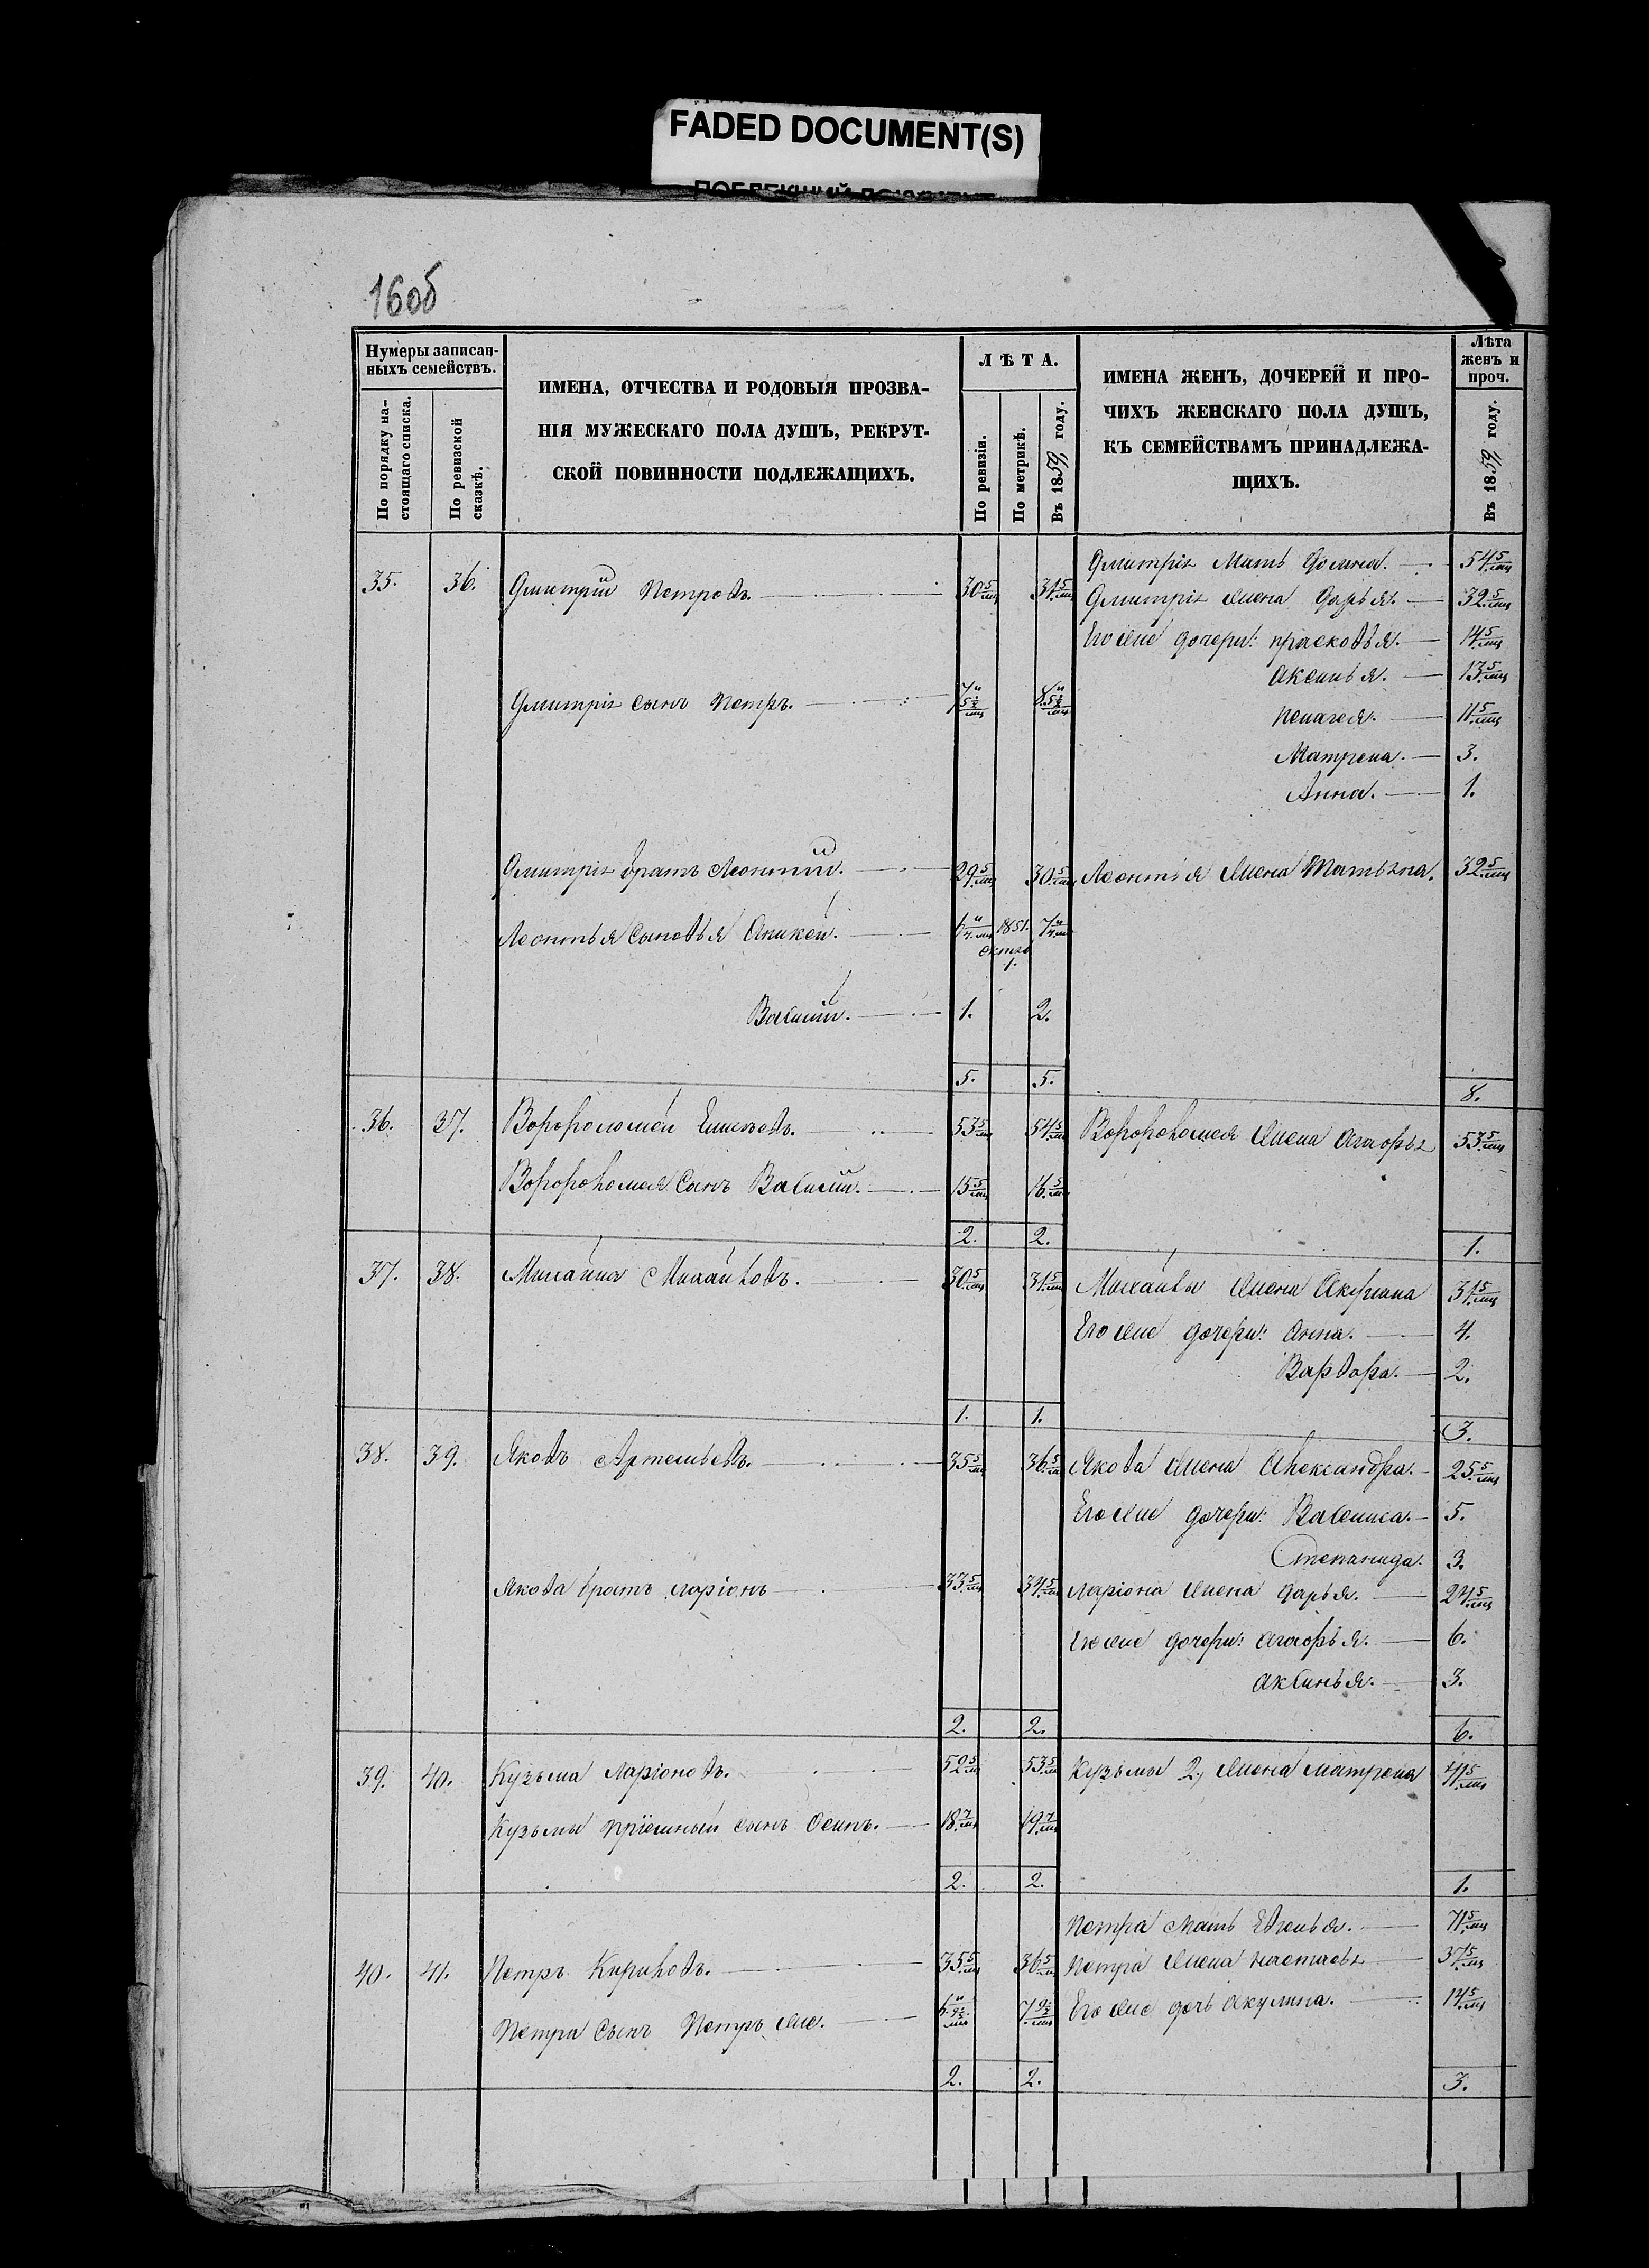 FADED DOCUMENT(S)
160б
Нумеры записан-
ныхъ семействъ.
По порядку на-
стоящаго списка.
По ревизской
сказкѣ.
ИМЕНА, ОТЧЕСТВА И РОДОВЫЯ ПРОЗВА-
НІЯ МУЖЕСКАГО ПОЛА ДУШЪ, РЕКРУТ-
СКОЙ ПОВИННОСТИ ПОДЛЕЖАЩИХЪ.
ЛѢТА.
По ревизіи.
По метрикѣ.
Въ 1859 году.
ИМЕНА ЖЕНЪ, ДОЧЕРЕЙ И ПРО-
ЧИХЪ ЖЕНСКАГО ПОЛА ДУШЪ,
КЪ СЕМЕЙСТВАМЪ ПРИНАДЛЕЖА-
ЩИХЪ.
Лѣта
женъ и
проч.
Въ 1859 году.
Дмитрія Мать 54 5/мц
35. 36. Дмитрій Петровъ. 30 5/мц 31 5/мц Дмитрія жена Дарья. 32 5/мц
Его же дочери: прасковья. 14 5/мц
Аксинья. 13 5/мц
Дмитрія сынъ Петръ. 7 и 5½/мц 8 и 5½/мц пелагея. 11 5/мц
Матрена. 3.
Анна. 1.
Дмитрія братъ Леонтій. 29 5/мц 30 5/мц Леонтія жена Татьяна. 32 5/мц
Леонтья сыновья Аникей. 6 и 4/мц 1851. 7 и 4/мц
октяб
1.
Василій. 1. 2.
5. 5. 8.
36. 37. Ворфоломей 53 5/мц 54 5/мц Ворфоломея жена Агафья 53 5/мц
Ворфоломея Сынъ Василій. 15 5/мц 16 5/мц
2. 2. 1.
37. 38. Михайла Михайловъ. 30 5/мц 31 5/мц Михайлы жена 31 5/мц
Его же дочери: Анна. 4.
Варвара. 2.
1. 1. 3.
38. 39. Яковъ Артемьевъ. 35 5/мц 36 5/мц Якова жена Александра. 25 5/мц
Его же дочери: Василиса. 5.
Степанида. 3.
Якова братъ ларіонъ 33 5/мц 34 5/мц ларіона жена дарья. 24 5/мц
Его же дочери: Агафья. 6.
аксинья. 3.
2. 2. 6.
39. 40. Кузьма Ларіоновъ. 52 5/мц 53 5/мц Кузьмы 2, жена матрена 41 5/мц
Кузьмы пріемный сынъ Осипъ. 18 7/мц 19 7/мц
2. 2. 1.
петра мать Евгенья. 71 5/мц
40. 41. Петръ Кириловъ. 35 5/мц 36 5/мц петра жена настасья 37 5/мц
Петра сынъ Петръ же. 6 и 9½/мц 7 9½/мц Его же дочь Акулина. 14 5/мц
2. 2. 3.